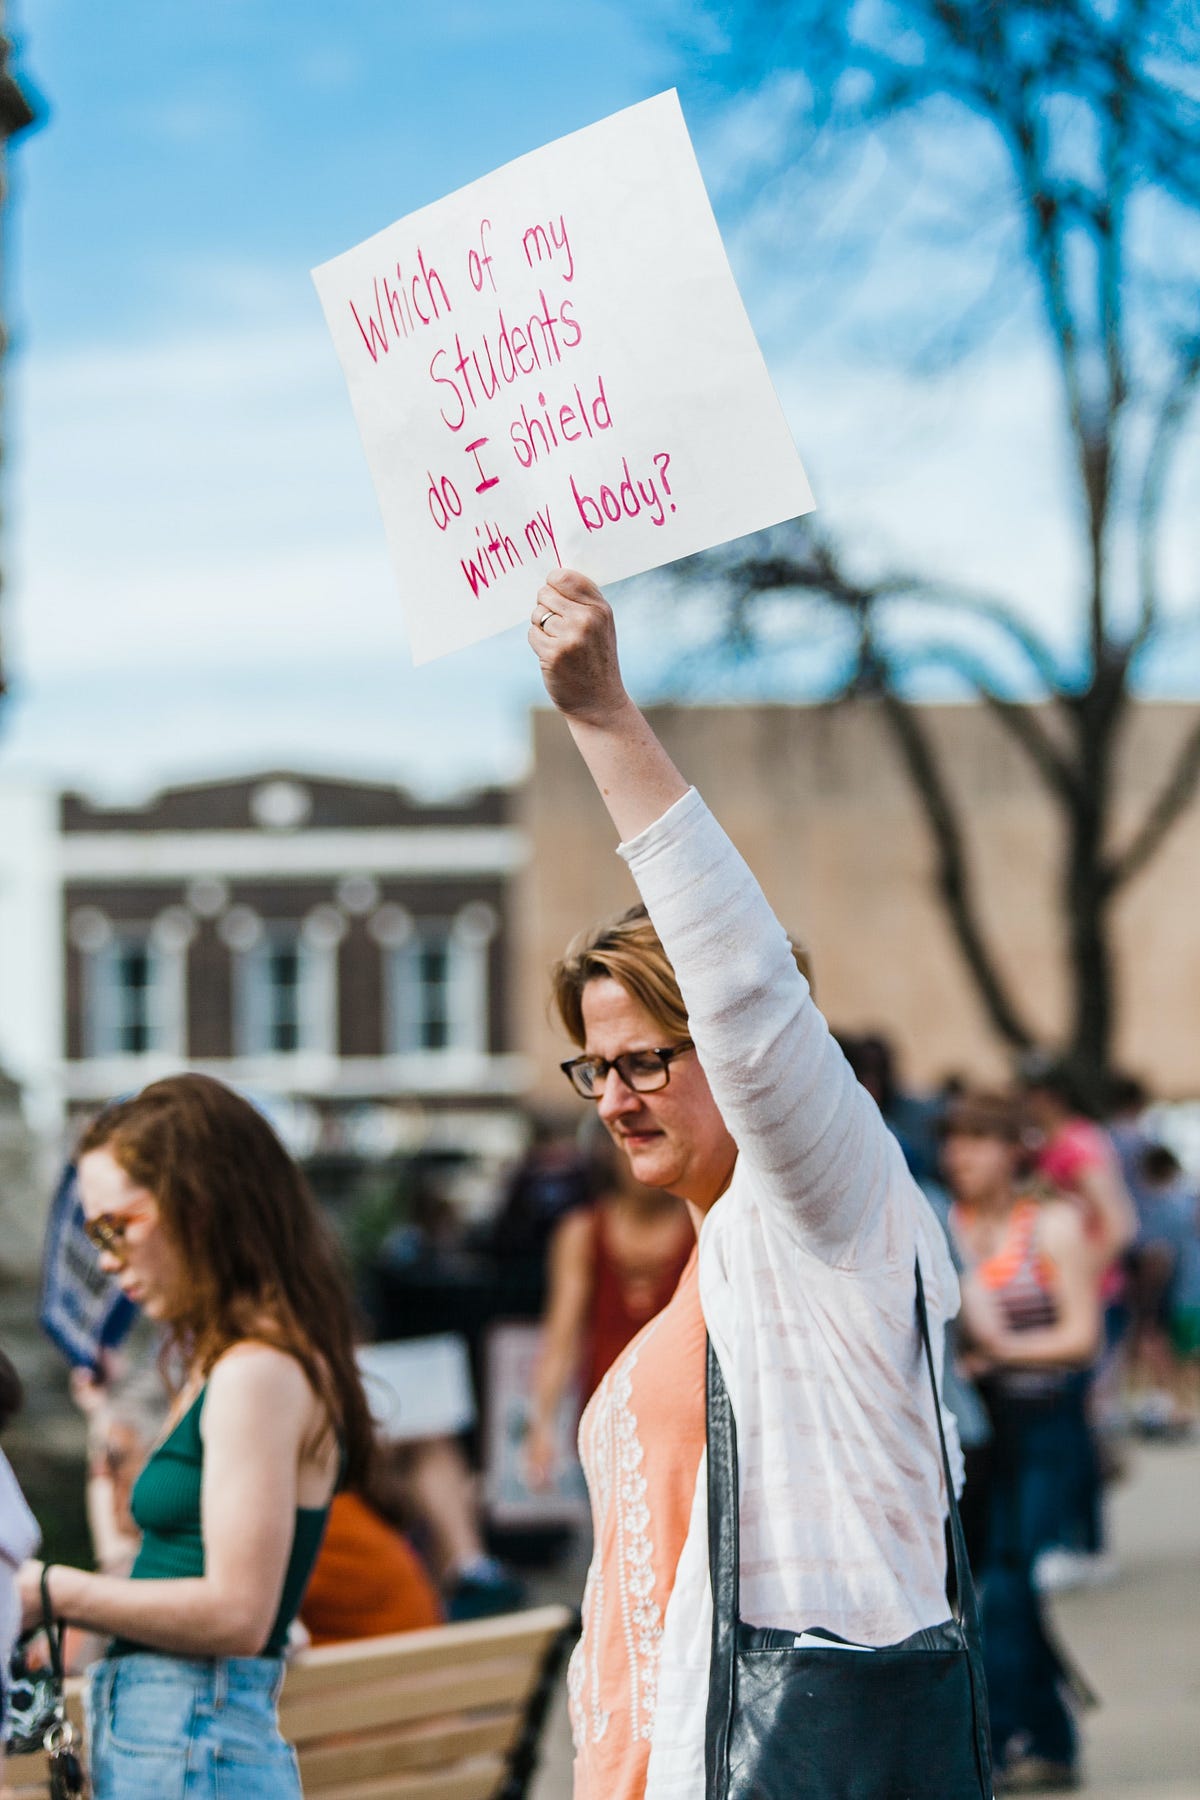 Which of my
Students
do I shield
with my body?